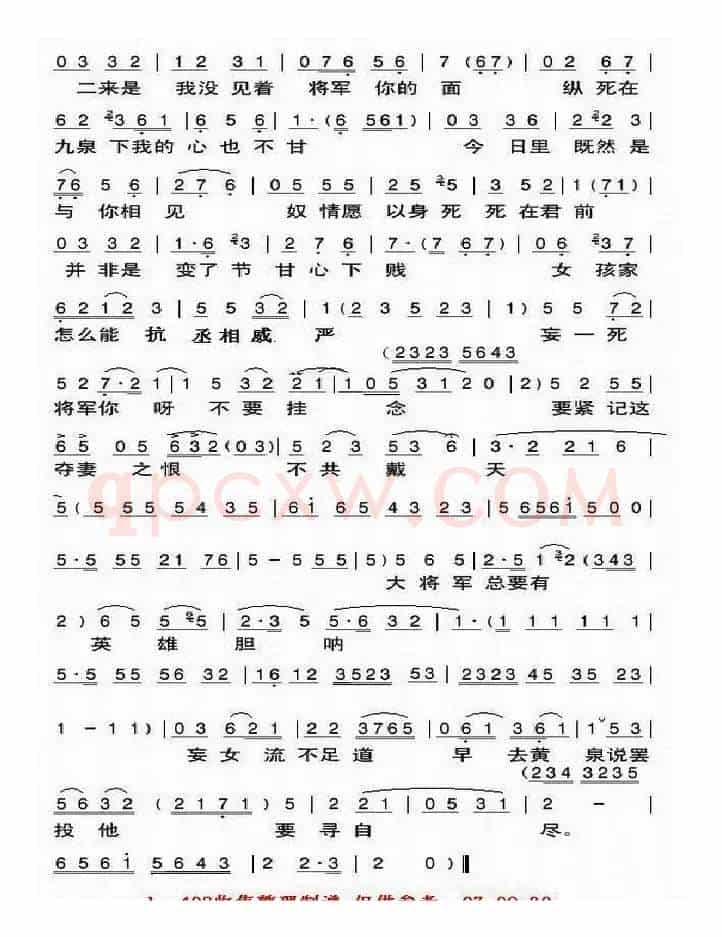 0 3 3 2 | 1 2 3 1 | 0 7 6 5 6 | 7 ( 6 7 ) | 0 2 6 7 |
二来是 我没见着 将军你的面 纵死在
6 2 2 3 6 1 | 6 5 6 | 1 · ( 6 5 6 1 ) | 0 3 3 6 | 2 2 2 3 |
九泉下我的心也不甘 今日里既然是
7 6 5 6 | 2 7 6 | 0 5 5 5 | 2 5 2 5 | 3 5 2 | 1 ( 7 1 ) |
与你相见 奴情愿以身死死在君前
0 3 3 2 | 1 · 6 2 3 | 2 7 6 | 7 · ( 7 6 7 ) | 0 6 2 3 7 |
并非是 变了节甘心下贱 女孩家
6 2 1 2 3 | 5 5 3 2 | 1 ( 2 3 5 2 3 | 1 ) 5 5 7 2 |
怎么能抗丞相威严 妄一死
( 2 3 2 3 5 6 4 3
5 2 7 · 2 1 | 1 5 3 2 2 1 | 1 0 5 3 1 2 0 | 2 ) 5 2 5 5 |
将军你呀不要挂念 要紧记这
6 5 0 5 6 3 2 ( 0 3 ) | 5 2 3 5 3 6 | 3 · 2 2 1 6 |
夺妻之恨 不共戴天
qpcxw.com
5 ( 5 5 5 5 4 3 5 | 6 1 6 5 4 3 2 3 | 5 6 5 6 1 5 0 0 |
5 · 5 5 5 2 1 7 6 | 5 - 5 5 5 | 5 ) 5 6 5 | 2 · 5 1 2 2 ( 3 4 3 |
大将军总要有
2 ) 6 5 5 2 5 | 2 · 3 5 5 · 6 3 2 | 1 · ( 1 1 1 1 1 |
英雄胆呐
5 · 5 5 5 5 6 3 2 | 1 6 1 2 3 5 2 3 5 3 | 2 3 2 3 4 5 3 5 2 3 |
1 - 1 1 ) | 0 3 6 2 1 | 2 2 3 7 6 5 | 0 6 1 3 6 1 | 1 5 3 |
妄女流不足道 早去黄泉说罢
( 2 3 4 3 2 3 5
5 6 3 2 ( 2 1 7 1 ) 5 | 2 2 1 | 0 5 3 1 | 2 - |
投他 要寻自尽。
6 5 6 1 5 6 4 3 | 2 2 · 3 | 2 0 ) ‖